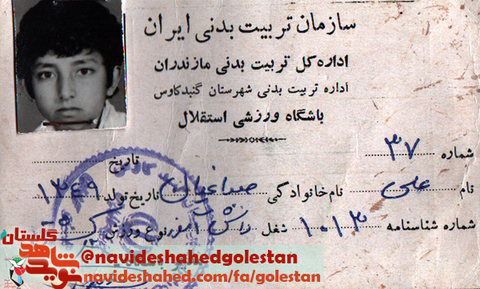 سازمان تربیت بدنی ایران
اداره کل تربیت بدنی مازندران
اداره تربیت بدنی شهرستان گنبدکاوس
باشگاه ورزشی استقلال
شماره ۳۷ تاریخ
نام علی نام خانوادگی تاریخ تولد ۱۳۴۹
شماره شناسنامه ۱۰۱۳ شغل دانش آموز نوع ورزش
نوید شاهد گلستان
@navideshahedgolestan
navideshahed.com/fa/golestan